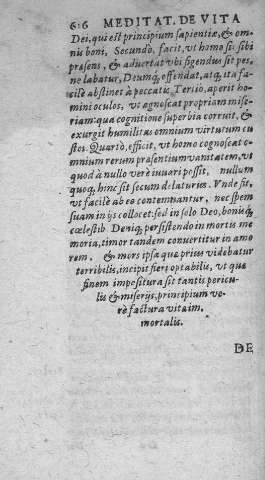 616 MEDITAT. DE VITA
Dei, qui est principium sapientiæ, & om-
nis boni. Secundò, facit, ut homo sit sibi
præsens, & aduertat ubi figendus sit pes,
ne labatur, Deumq́; offendat, atq; ita fa-
cilè abstinet à peccatis. Tertiò, aperit ho-
mini oculos, ut agnoscat propriam mise-
riam: qua cognitione superbia corruit, &
exurgit humilitas omnium virtutum cu-
stos. Quartò, efficit, ut homo cognoscat o-
mnium rerum præsentium vanitatem, vt
quod à nullo verè iuuari possit, nullum
quoq́;, hinc sit secum delaturus. Vnde fit,
vt facilè ab eo contemnantur, nec spem
suam in ijs collocet: sed in solo Deo, bonisq́;
cœlestib. Deniq;, persistendo in mortis me
moria, timor tandem conuertitur in amo
rem. & mors ipsa que prius videbatur
terribilis, incipit fieri optabilis, vt que
finem impositura sit tantis pericu-
lis & miserijs, principium ve-
rè factura vitæ im-
mortalis.
DE